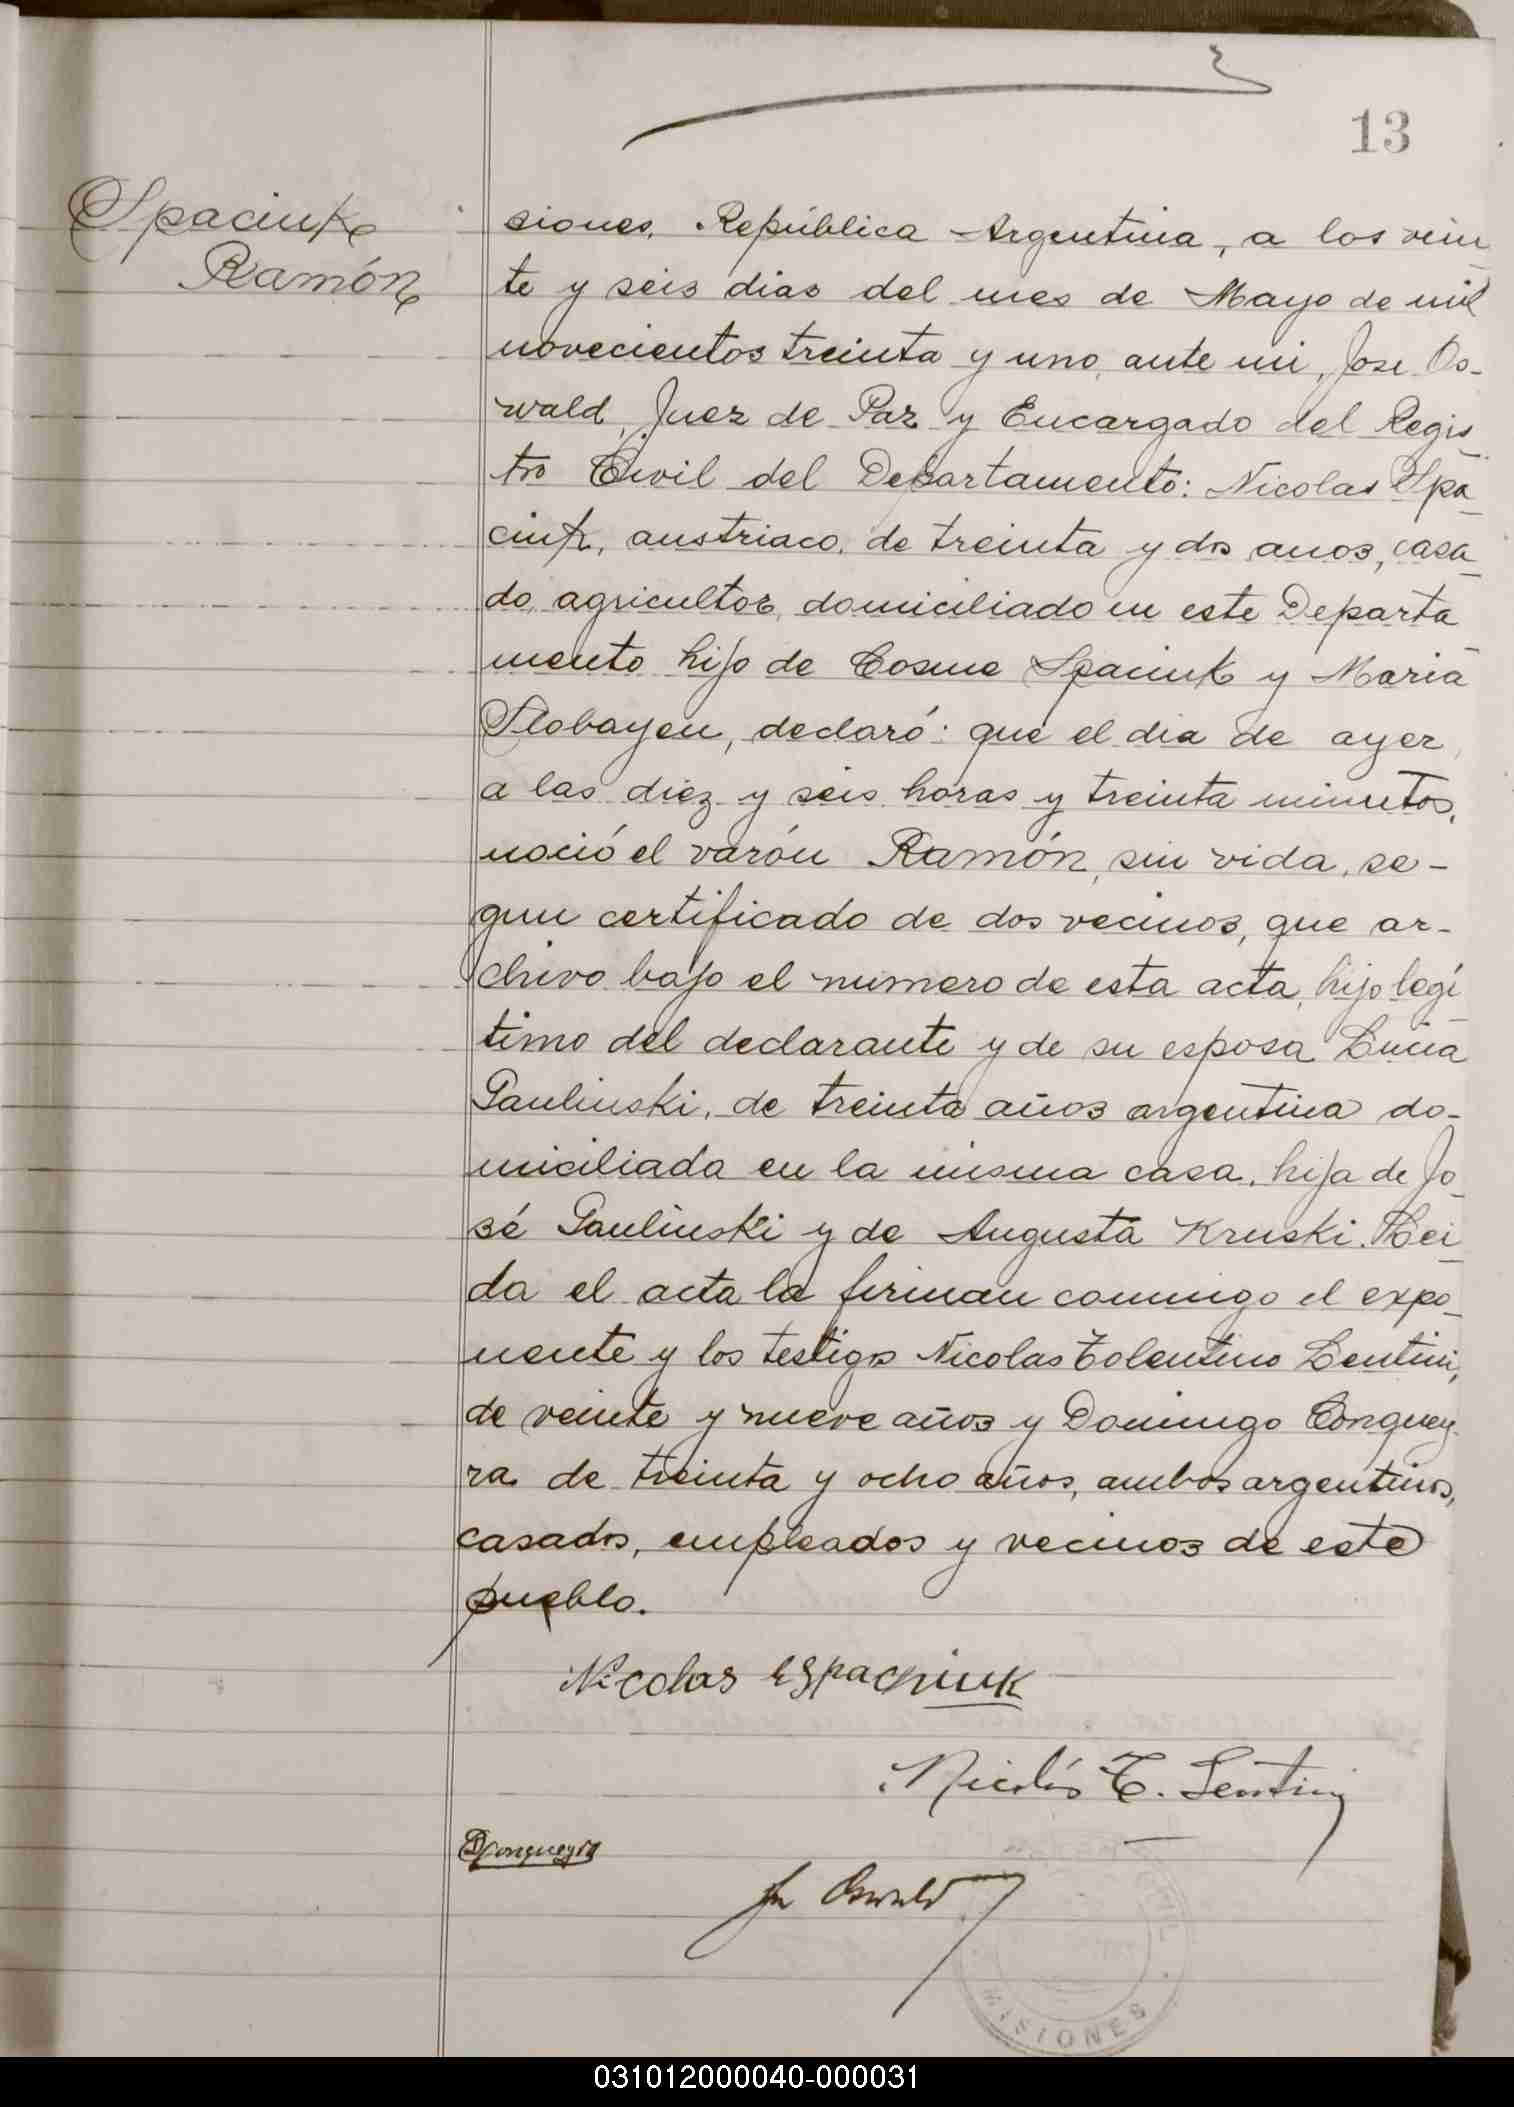 13
Spaciuk
Ramón
siones, República Argentina, a los vein
te y seis dias del mes de Mayo de mil
novecientos treinta y uno, ante mi, Jose Os-
wald, Juez de Paz y Encargado del Regis
tro Civil del Departamento: Nicolas Spa
ciuk, austriaco, de treinta y dos anos, casa
do, agricultor, domiciliado en este Departa
mento hijo de Cosme Spaciuk y Maria
Slobayen, declaró: que el dia de ayer,
a las diez y seis horas y treinta minutos,
nació el varón Ramón, sin vida, se-
gun certificado de dos vecinos, que ar-
chivo bajo el numero de esta acta, hijo legí
timo del declarante y de su esposa Lucia
Paulinski, de treinta años argentina do-
miciliada en la misma casa, hija de Jo
sé Paulinski y de Augusta Kruski. Lei
da el acta la firman conmigo el expo
nente y los testigos Nicolas Tolentino Lentini,
de veinte y nueve años y Domingo Conguey
ra de treinta y ocho años, ambos argentinos,
casados, empleados y vecinos de este
pueblo.
Nicolas Espachiuk
Nicolás T. Lentini
D Congueyra
Oswald
MISIONES
031012000040-000031